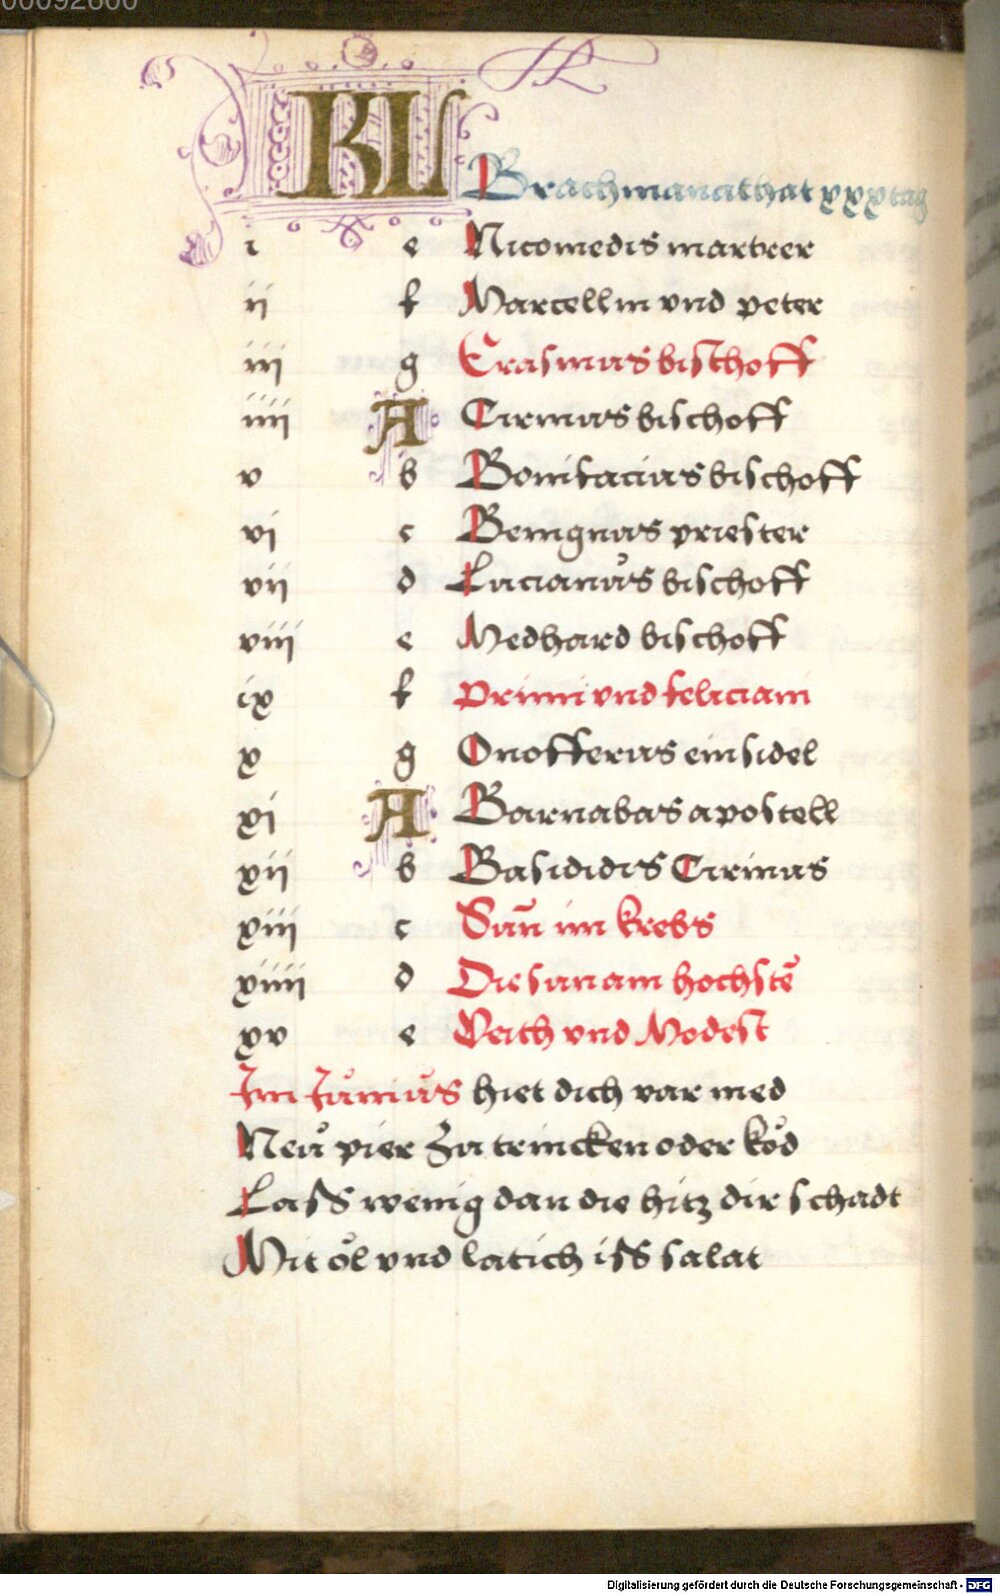 00092600
KL Brachmanat hat xxx tag
i e Nicomedis martrer
ii f Marcellin vnd peter
iii g Erasmus bischoff
iiii A Cirinus bischoff
v b Bonifacius bischoff
vi c Benignus priester
vii d Lucianus bischoff
viii e Medhard bischoff
ix f Primi vnd feliciani
x g Onofferus einsidel
xi A Barnabas apostell
xii b Basididis Cirinus
xiii c Sun im krebs
xiiii d Die sun am hochstē
xv e Veith vnd Modest
Im Junius hiet dich var med
Neu pier zu trincken oder kod
Lass wenig dan die hitz dir schadt
Mit öl vnd latich iss salat
Digitalisierung gefördert durch die Deutsche Forschungsgemeinschaft - DFG